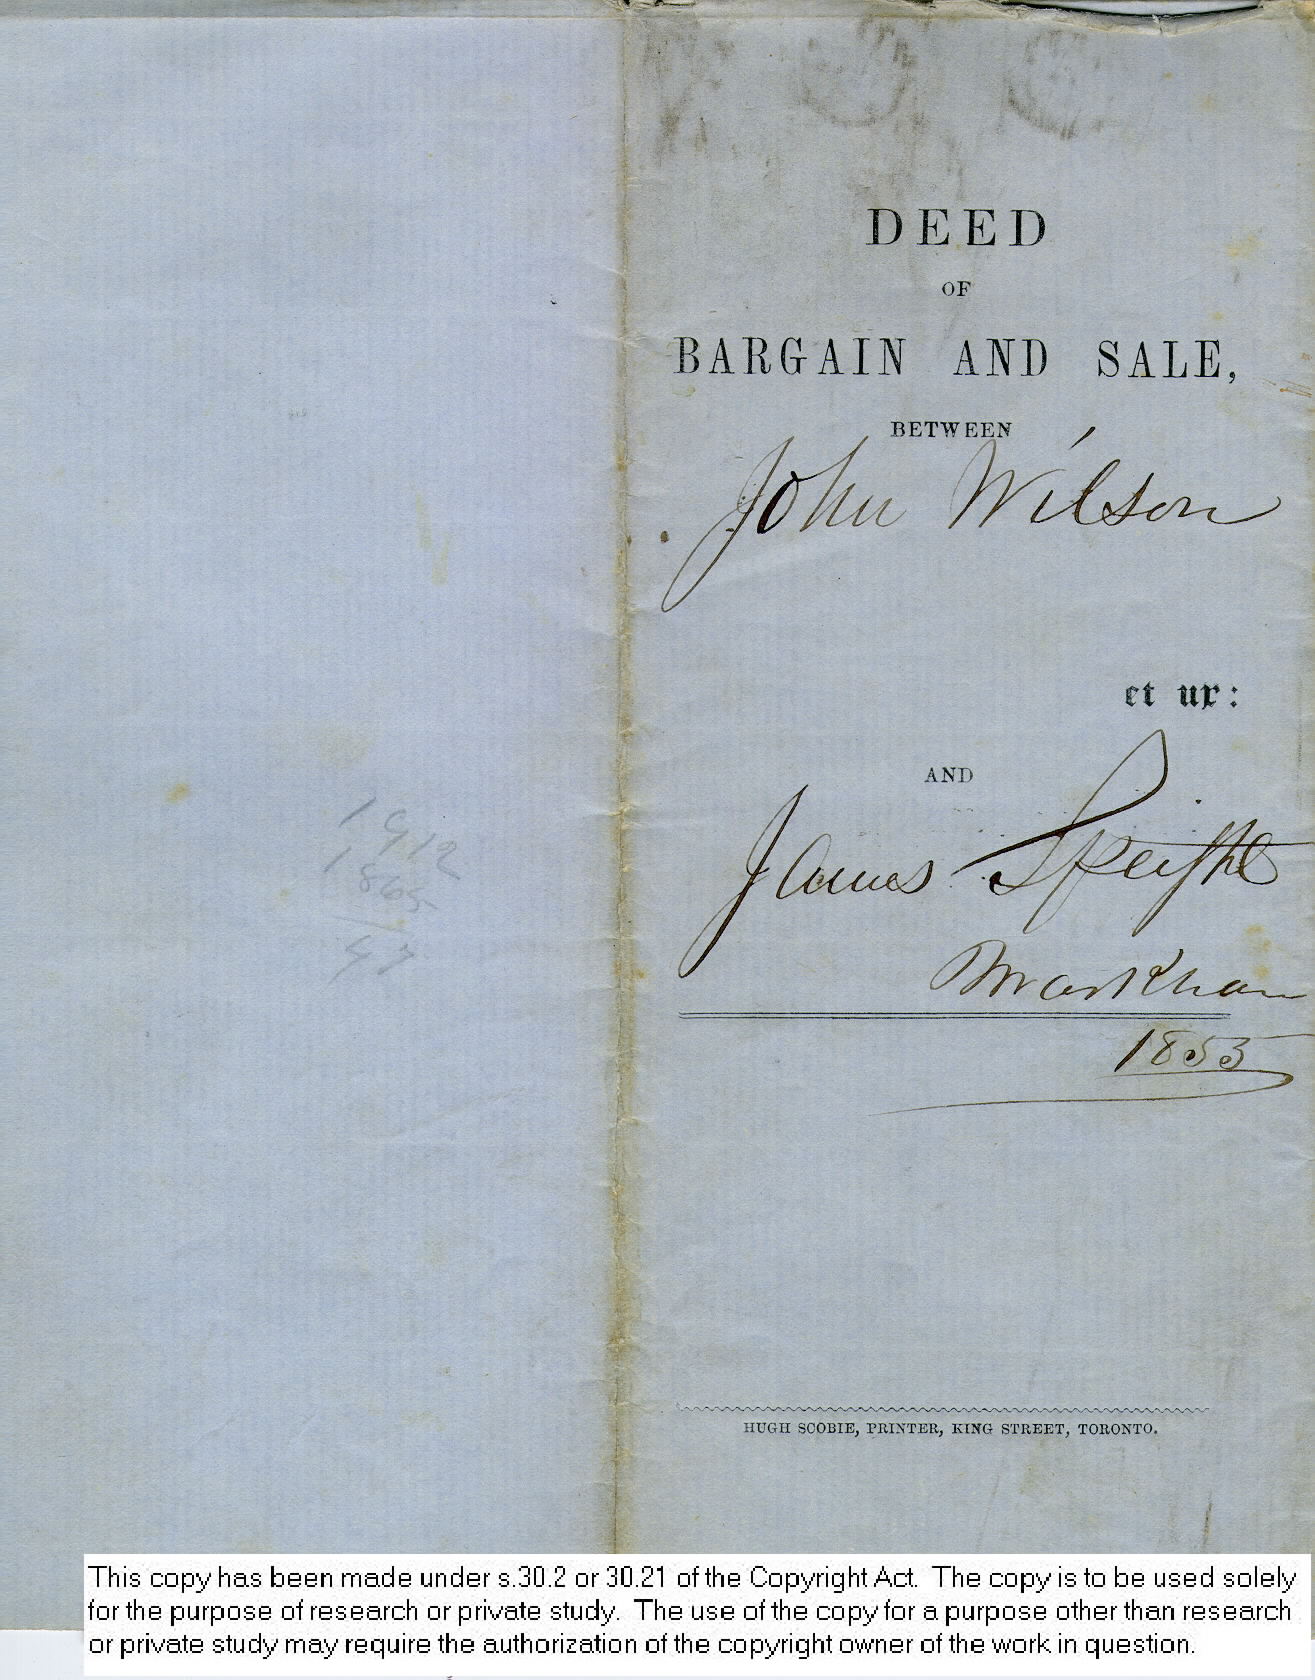 1912
1865
47
DEED
OF
BARGAIN AND SALE,
BETWEEN
John Wilson
et ux:
AND
James Speight
Markham
1853
HUGH SCOBIE, PRINTER, KING STREET, TORONTO.
This copy has been made under s.30.2 or 30.21 of the Copyright Act. The copy is to be used solely
for the purpose of research or private study. The use of the copy for a purpose other than research
or private study may require the authorization of the copyright owner of the work in question.